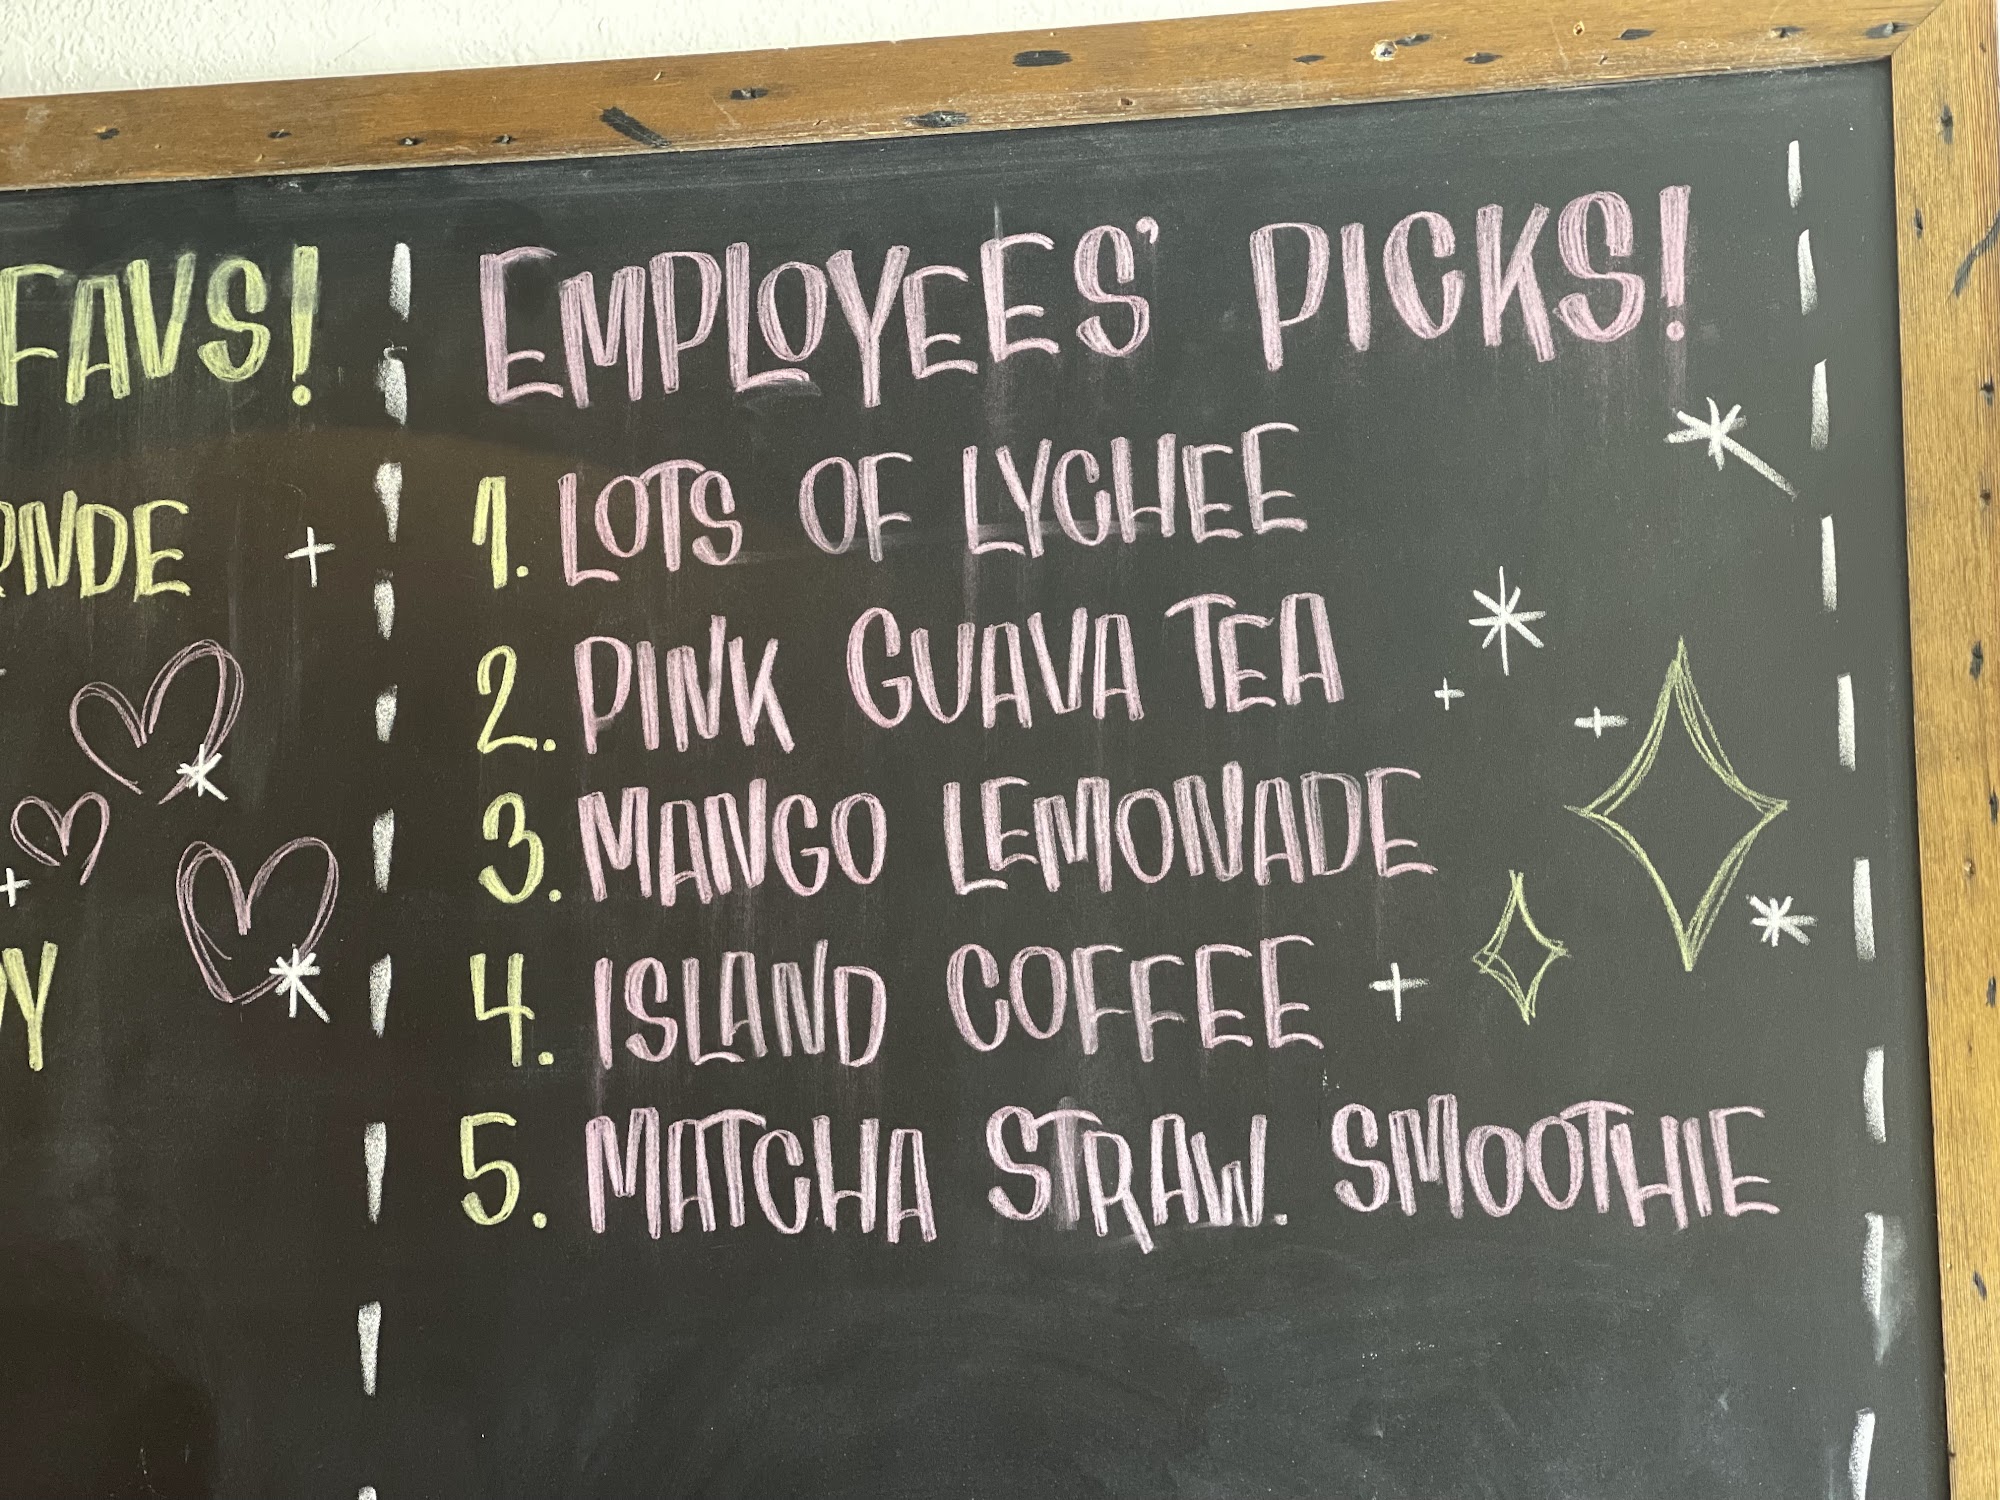 FAVS!
EMPLOYEES' PICKS!
1. LOTS OF LYCHEE
2. PINK GUAVA TEA
3. MANGO LEMONADE
4. ISLAND COFFEE
5. MATCHA STRAW. SMOOTHIE